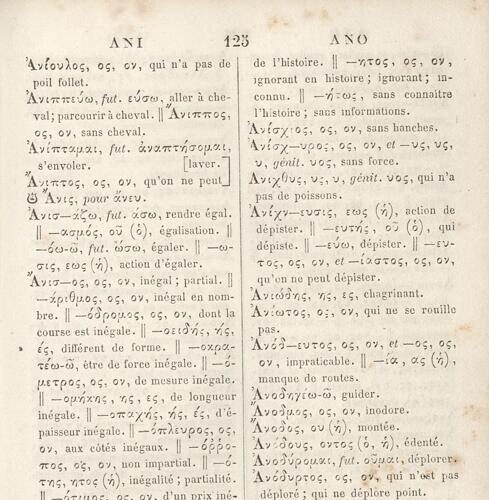 ANI 125 ANO
Ἀνίουλος, ος, ον, qui n'a pas de
poil follet.
Ἀνιππεύω, fut. εύσω, aller à che-
val; parcourir à cheval. || Ἄνιππος,
ος, ον, sans cheval.
Ἀνίπταμαι, fut. ἀναπτήσομαι,
s'envoler. [laver.
Ἄνιπτος, ος, ον, qu'on ne peut]
Ἄνις, pour ἄνευ.
Ἀνισ—άζω, fut. άσω, rendre égal.
|| —ασμός, οῦ (ὁ), égalisation. ||
—όω-ῶ, fut. ώσω, égaler. || —ω-
σις, εως (ἡ), action d'égaler.
Ἄνισ—ος, ος, ον, inégal; partial. ||
—άριθμος, ος, ον, inégal en nom-
bre. || —όδρομος, ος, ον, dont la
course est inégale. || —οειδής, ής,
ές, différent de forme. || —οκρα-
τέω-ῶ, être de force inégale. || —ό-
μετρος, ος, ον, de mesure inégale.
|| —ομήκης, ης, ες, de longueur
inégale. || —οπαχής, ής, ές, d'é-
paisseur inégale. || —όπλευρος, ος,
ον, aux côtés inégaux. || —όρρο-
πος, ος, ον, non impartial. || —ό-
της, ητος (ἡ), inégalité; partialité.
|| —ότιμος, ος, ον, d'un prix iné-
de l'histoire. || —ητος, ος, ον,
ignorant en histoire; ignorant; in-
connu. || —ήτως, sans connaître
l'histoire; sans informations.
Ἀνίσχιος, ος, ον, sans hanches.
Ἀνίσχ—υρος, ος, ον, et —υς, υς,
υ, génit. υος, sans force.
Ἄνιχθυς, υς, υ, génit. υος, qui n'a
pas de poissons.
Ἀνίχν—ευσις, εως (ἡ), action de
dépister. || —ευτής, οῦ (ὁ), qui
dépiste. || —εύω, dépister. || —ευ-
τος, ος, ον, et —ίαστος, ος, ον,
qu'on ne peut dépister.
Ἀνιώδης, ης, ες, chagrinant.
Ἀνίωτος, ος, ον, qui ne se rouille
pas.
Ἀνόδ—ευτος, ος, ον, et —ος, ος,
ον, impraticable. || —ία, ας (ἡ),
manque de routes.
Ἀνοδηγέω-ῶ, guider.
Ἄνοδμος, ος, ον, inodore.
Ἄνοδος, ου (ἡ), montée.
Ἀνόδους, οντος (ὁ, ἡ), édenté.
Ἀνοδύρομαι, fut. οῦμαι, déplorer.
Ἀνόδυρτος, ος, ον, qui n'est pas
déploré; qui ne déplore point.